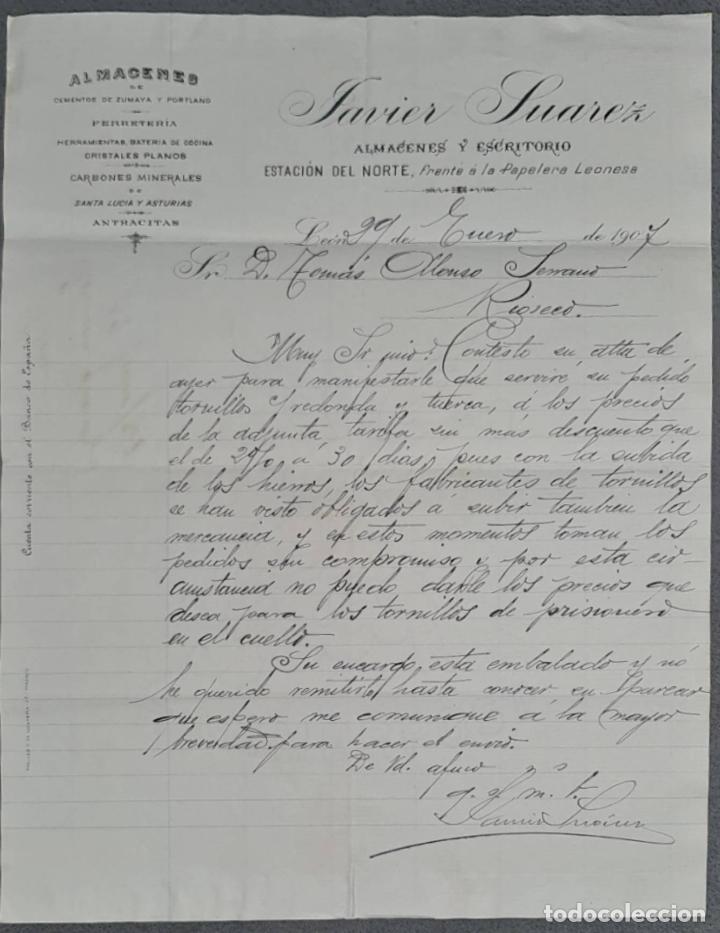 ALMACENES
DE
CEMENTOS DE ZUMAYA Y PORTLAND
FERRETERÍA
HERRAMIENTAS, BATERIA DE COCINA
CRISTALES PLANOS
CARBONES MINERALES
DE
SANTA LUCIA Y ASTURIAS
ANTRACITAS
Javier Suarez
ALMACENES Y ESCRITORIO
ESTACIÓN DEL NORTE, Frente á la Papelera Leonesa
León 29 de Enero de 1907
Sr. D. Tomás Alonso Serrano
Rioseco.
Muy Sr mio: Contesto su atta de
ayer para manifestarle que serviré su pedido
tornillos c/ redonda y tuerca, á los precios
de la adjunta tarifa sin más descuento que
el de 2% á 30 dias, pues con la subida
de los hierros, los fabricantes de tornillos
se han visto obligados á subir tambien la
mercancia, y en estos momentos toman los
pedidos sin compromiso y por esta cir-
cunstancia no puedo darle los precios que
desea para los tornillos de prisionero
en el cuello.
Su encargo, esta embalado y nó
he querido remitirlo hasta conocer su parecer
que espero me comunique á la mayor
brevedad para hacer el envio.
De Vd. afmo
q. b. m.
Javier Suárez
Cuenta corriente con el Banco de España
todocoleccion.net